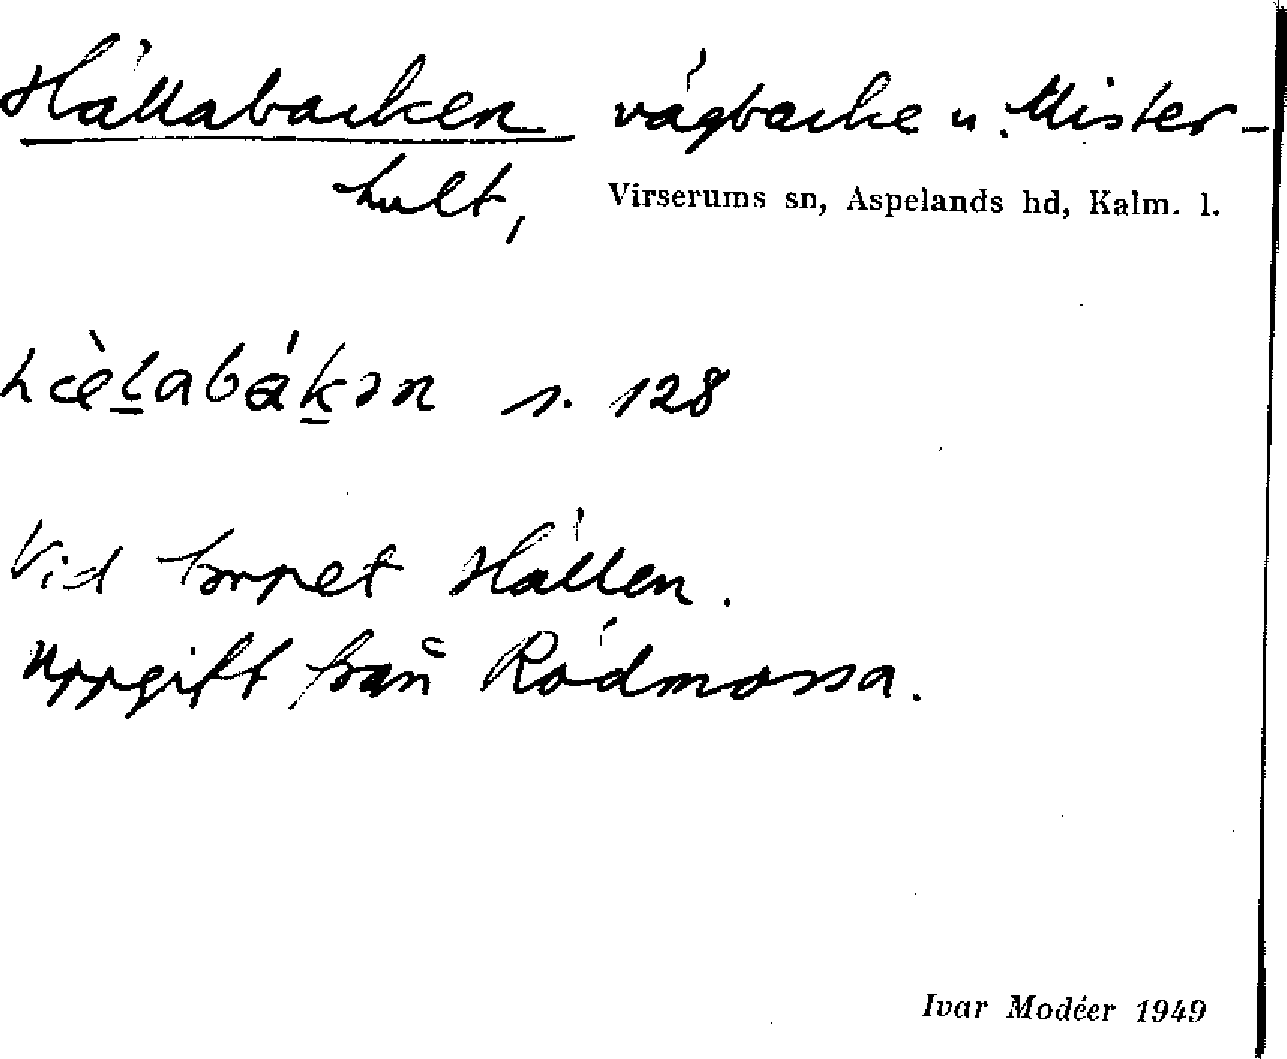 Hällabacken vägbacke u. Mister-
hult,
Virserums sn, Aspelands hd, Kalm. l.
hæ̀l̲abák̲ən s. 128
Vid torpet Hällen.
Uppgift från Rödmossa.
Ivar Modéer 1949